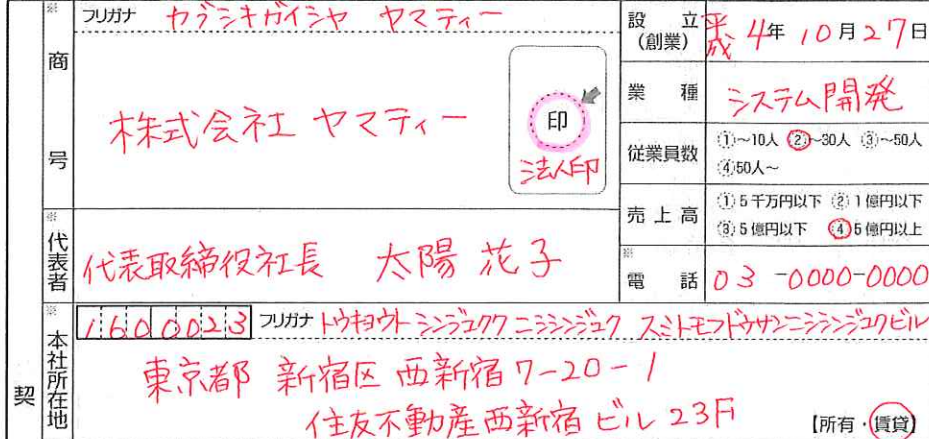 ※ フリガナ カブシキガイシャ ヤマティー
商号
株式会社 ヤマティー
印
法人印
設立(創業) 平成 4年 10月27日
業種 システム開発
従業員数 ①~10人 ②~30人 ③~50人
④50人~
売上高 ①5千万円以下 ②1億円以下
③5億円以下 ④5億円以上
※ 代表者 代表取締役社長 太陽 花子
※ 電話 03-0000-0000
※ 本社所在地
1600023 フリガナ トウキョウト シンジュクク ニシシンジュク スミトモフドウサンニシシンジュクビル
東京都 新宿区 西新宿 7-20-1
住友不動産西新宿ビル 23F
【所有・賃貸】
契